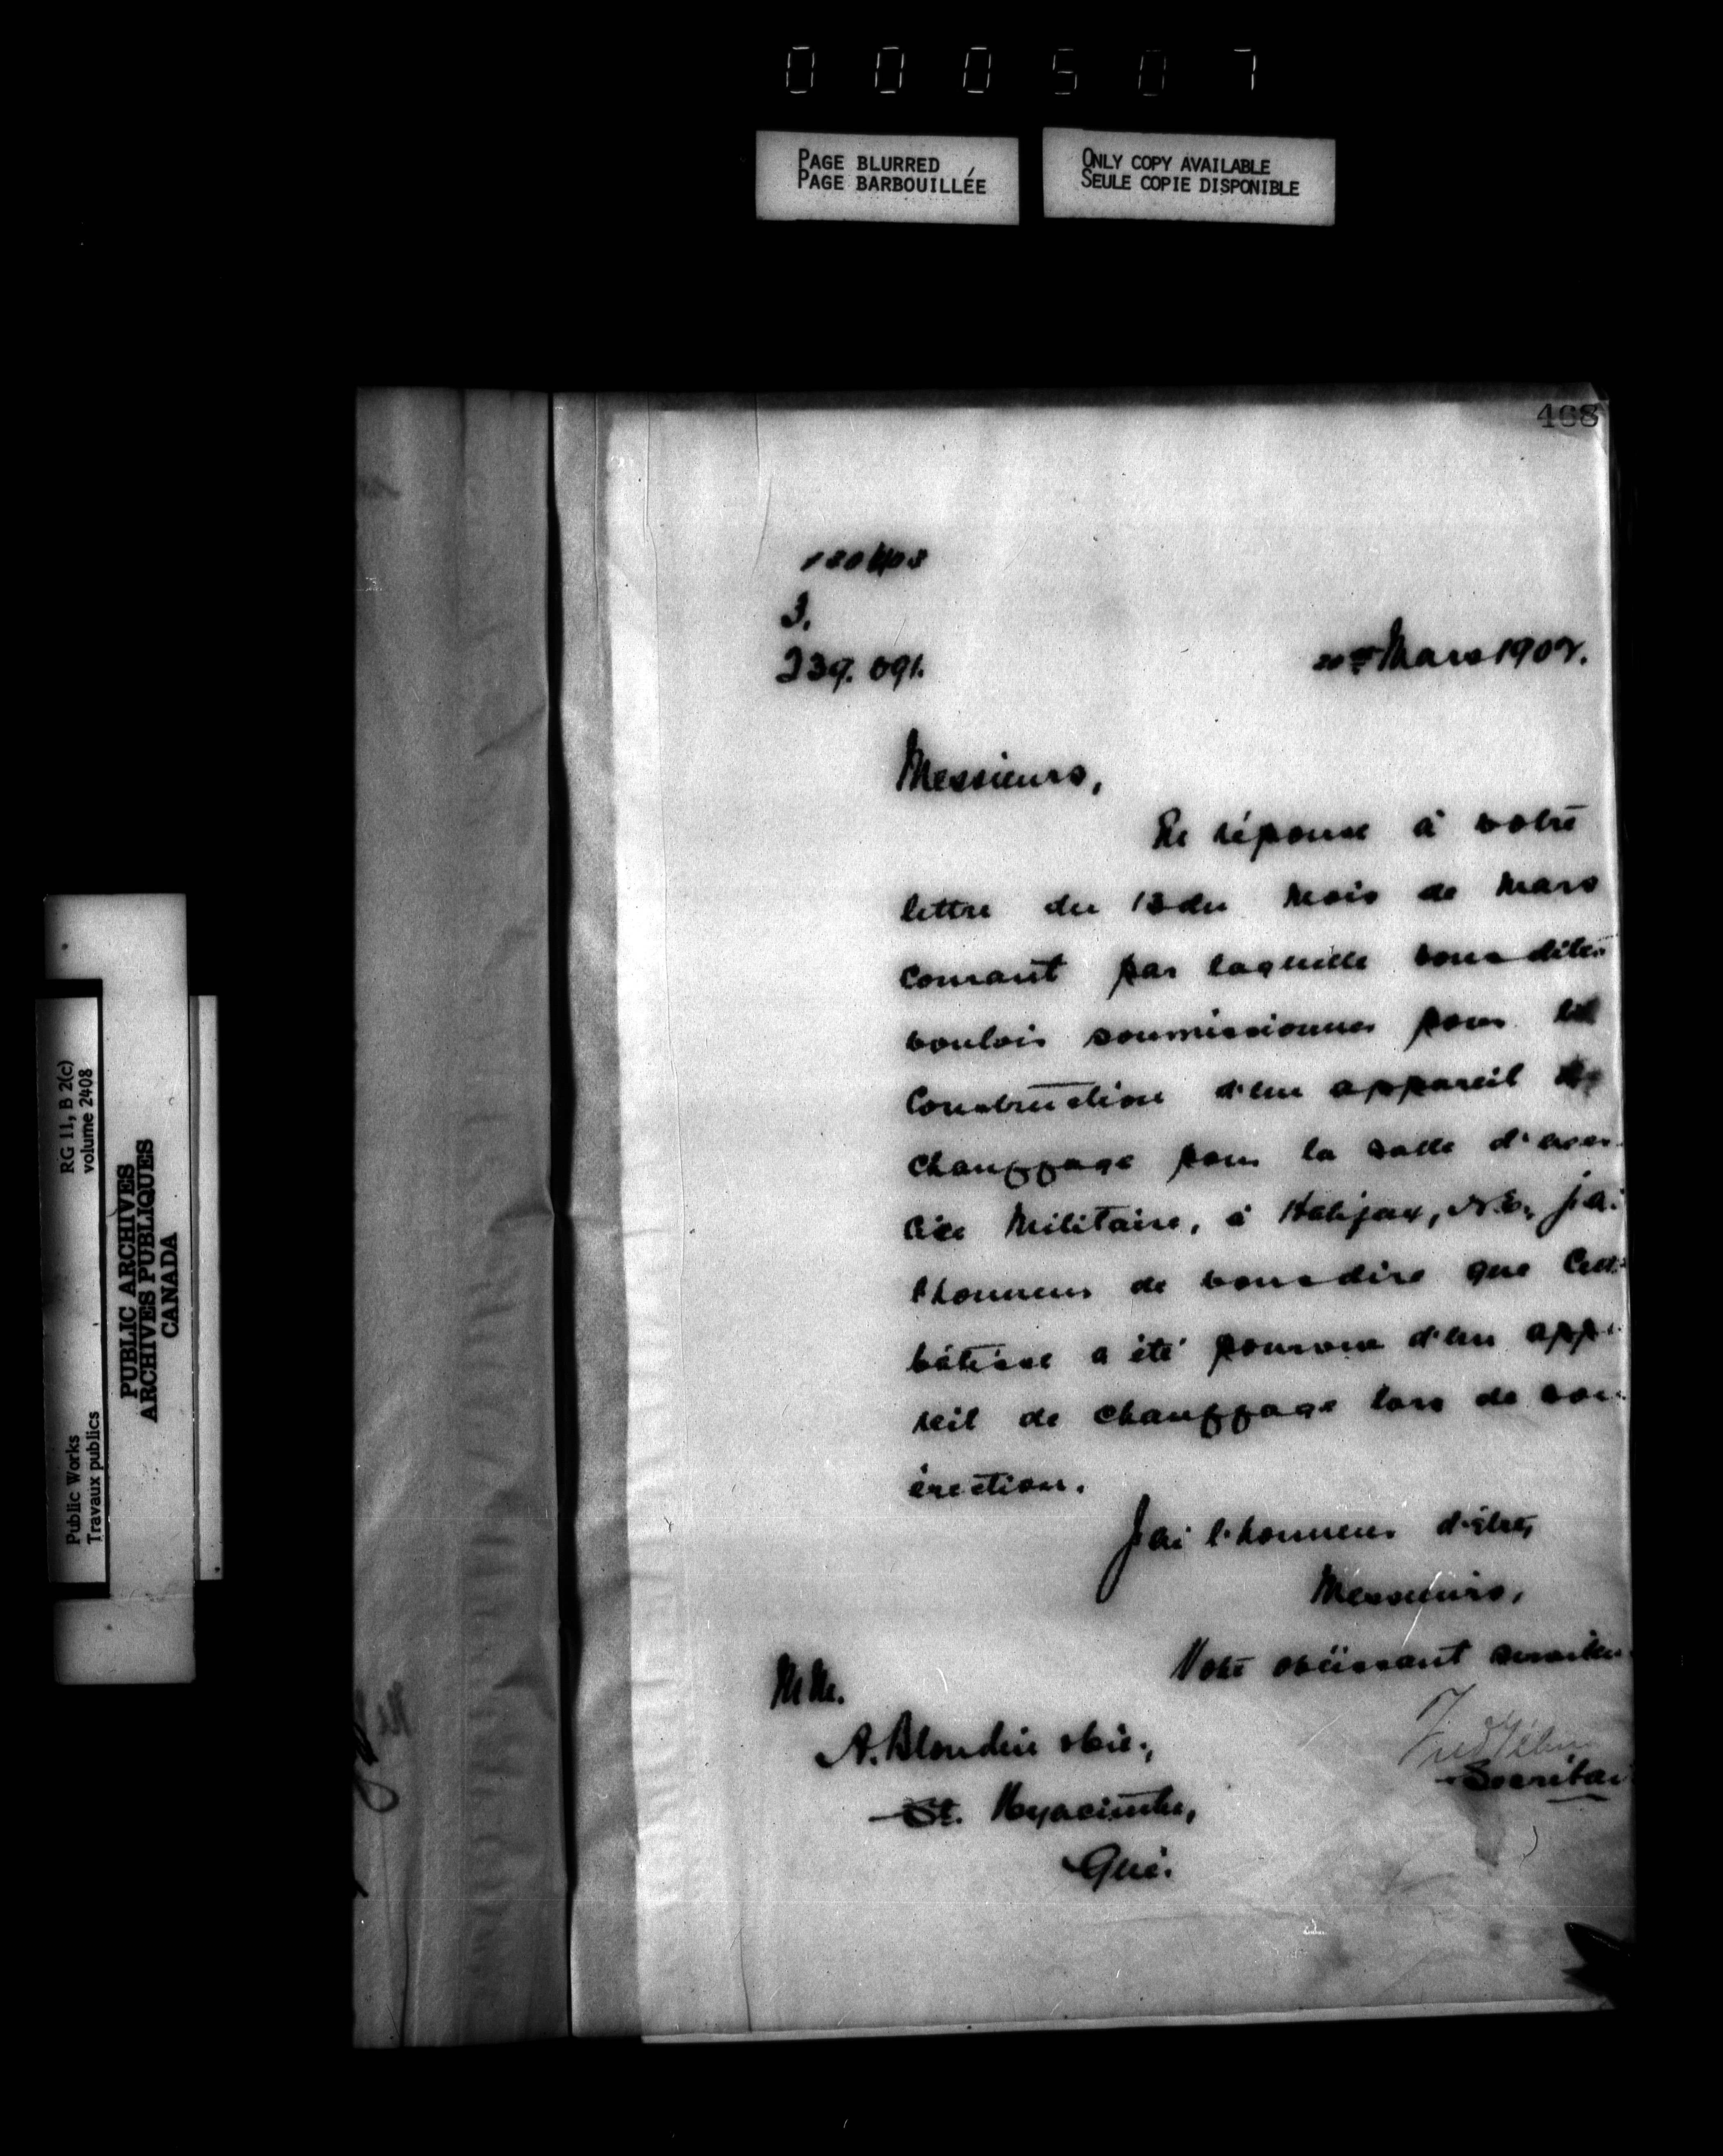 000507
PAGE BLURRED
PAGE BARBOUILLÉE
ONLY COPY AVAILABLE
SEULE COPIE DISPONIBLE
468
3.
239.091.
Mars 1902.
Messieurs,
En réponse à votre
lettre du 13 du mois de Mars
courant par laquelle vous dites
vouloir soumissionner pour la
construction d'un appareil de
chauffage pour la salle d'exer-
cice Militaire, à Halifax, N.E., j'ai
l'honneur de vous dire que cette
bâtisse a été pourvue d'un appa
reil de chauffage lors de son
érection.
J'ai l'honneur d'être,
Messieurs,
Votre obéissant serviteur
Secrétai
MM.
A. Blondin &cie.,
St. Hyacinthe,
Qué.
RG 11, B 2(c)
volume 2408
Public Works
Travaux publics
PUBLIC ARCHIVES
ARCHIVES PUBLIQUES
CANADA